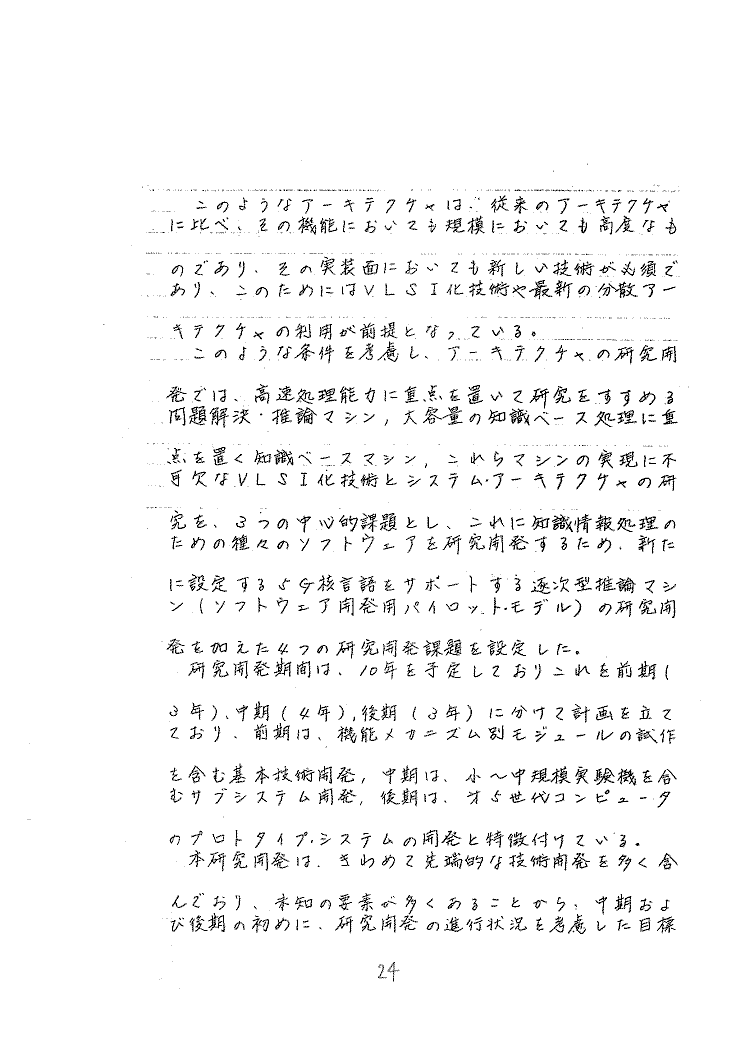 このようなアーキテクチャは、従来のアーキテクチャ
に比べ、その機能においても規模においても高度なも
のであり、その実装面においても新しい技術が必須で
あり、このためにはVLSI化技術や最新の分散アー
キテクチャの利用が前提となっている。
このような条件を考慮し、アーキテクチャの研究開
発では、高速処理能力に重点を置いて研究をすすめる
問題解決・推論マシン,大容量の知識ベース処理に重
点を置く知識ベースマシン,これらマシンの実現に不
可欠なVLSI化技術とシステム・アーキテクチャの研
究を、3つの中心的課題とし、これに知識情報処理の
ための種々のソフトウェアを研究開発するため、新た
に設定する5G核言語をサポートする逐次型推論マシ
ン(ソフトウェア開発用パイロット・モデル)の研究開
発を加えた4つの研究開発課題を設定した。
研究開発期間は、10年を予定しておりこれを前期(
3年)、中期(4年),後期(3年)に分けて計画を立て
ており、前期は、機能メカニズム別モジュールの試作
を含む基本技術開発,中期は、小〜中規模実験機を含
むサブシステム開発,後期は、才5世代コンピュータ
のプロトタイプ・システムの開発と特徴付けている。
本研究開発は、きわめて先端的な技術開発を多く含
んでおり、未知の要素が多くあることから、中期およ
び後期の初めに、研究開発の進行状況を考慮した目標
24